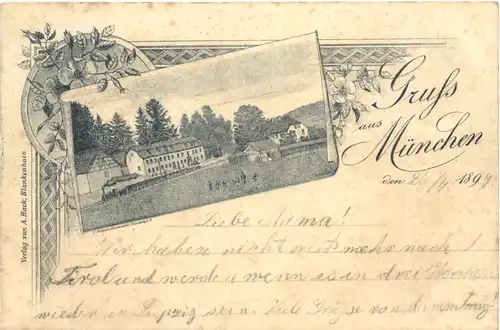 Gruss
aus
München
den 189
Verlag von A. Hack, Blankenhain.
Liebe Mama!
Wir haben nicht mehr nach
Tirol und werden wenn es in drei
wieder in Leipzig sein. Viele Grüße von deinem